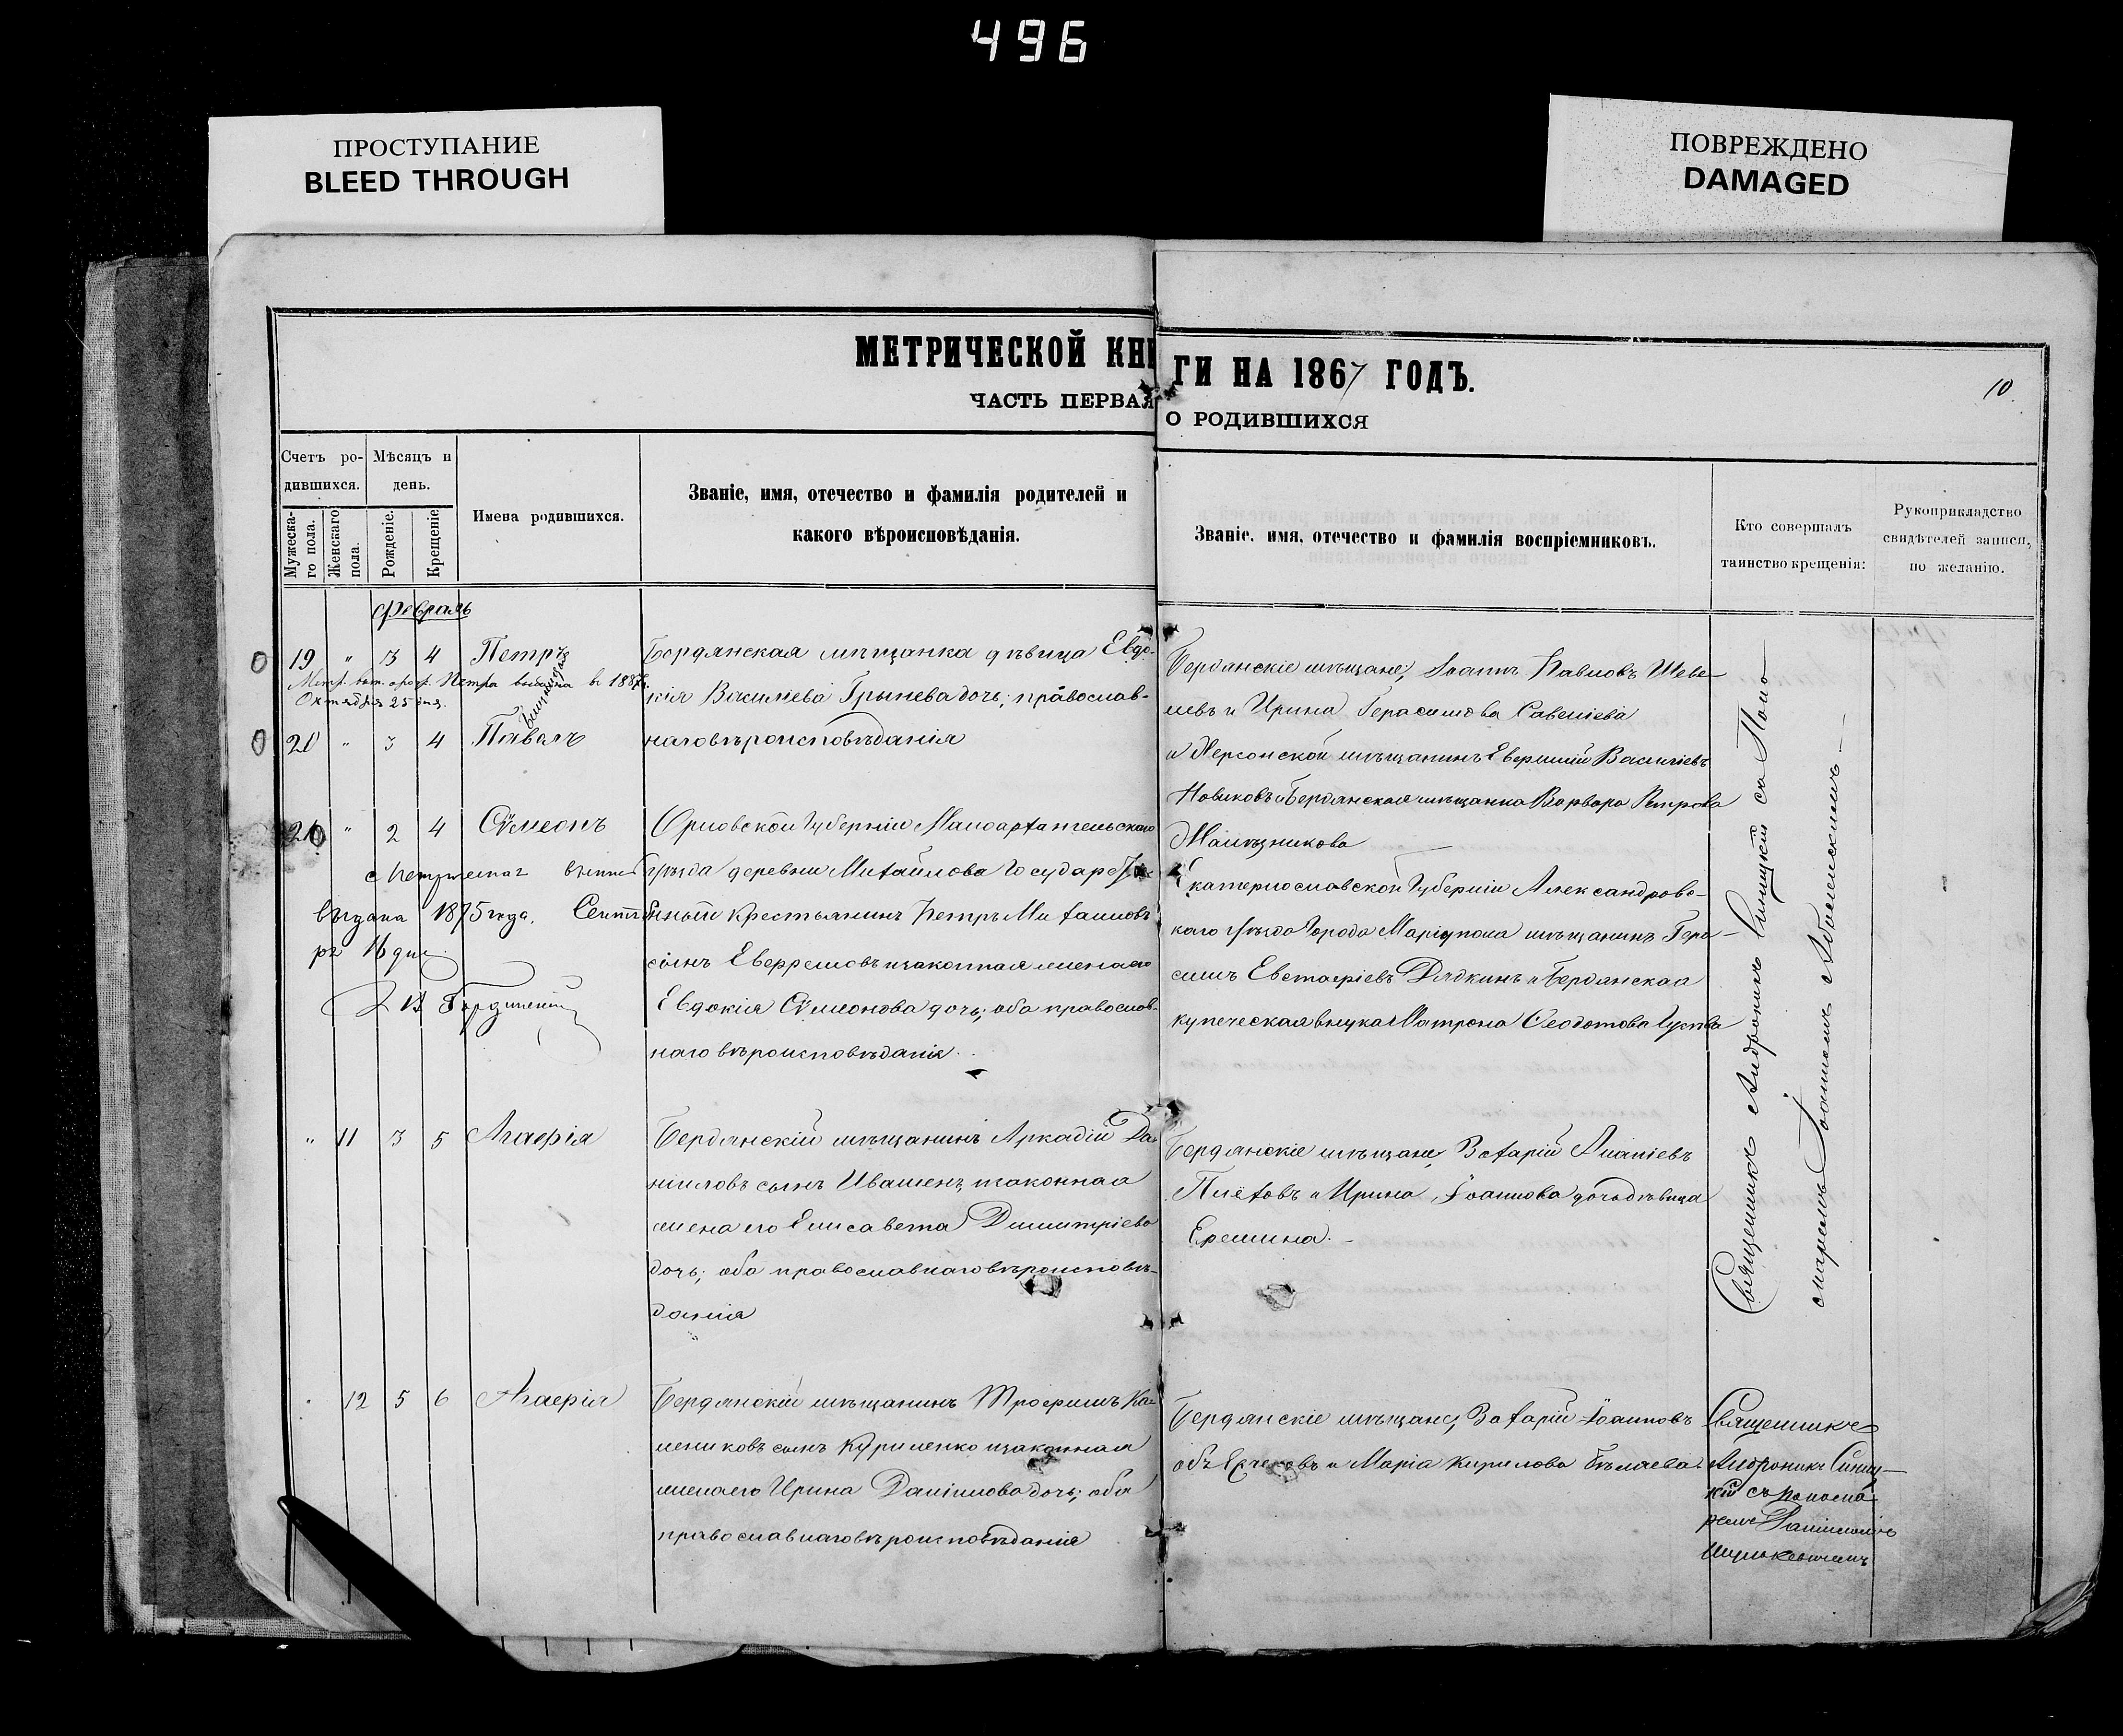 496
ПРОСТУПАНИЕ
BLEED THROUGH
ПОВРЕЖДЕНО
DAMAGED
МЕТРИЧЕСКОЙ КНИГИ НА 1867 ГОДЪ.
ЧАСТЬ ПЕРВАЯ О РОДИВШИХСЯ
10
Счетъ родившихся.
Мужескаго пола.
Женскаго пола.
Мѣсяцъ и день.
Рожденіе.
Крещеніе
Имена родившихся.
Званіе, имя, отечество и фамилія родителей и
какого вѣроисповѣданія.
Званіе, имя, отечество и фамилія воспріемниковъ.
Кто совершалъ
таинство крещенія:
Рукоприкладство
свидѣтелей записи,
по желанію.
Февраль
19 " 3 4 Петръ
Октября 25 дня.
20 " 3 4 Павелъ
близнецы
Бердянская мѣщанка дѣвица Евдо-
кія Василіева Грынева дочь; православ-
наго вѣроисповѣданія
Бердянскіе мѣщане; Іоаннъ Павловъ Шеве-
левъ и Ирина Герасимова Савеліева
и Херсонской мѣщанинъ Евфимій Василіевъ
Новиковъ и Бердянская мѣщанка Варвара Петрова
21 " 2 4 Сѵмеонъ
выдана 1875 года. Сентяб
ря 16 дня
Орловской Губерніи Малоархангельскаго
уѣзда деревни Михайлова Государст
венный крестьянинъ Петръ Михаиловъ
сынъ и законная жена его
Евдокія Сѵмеонова дочь; оба православ-
наго вѣроисповѣданія.
Екатеринославской Губерніи Александровс-
каго уѣзда Города Маріупола мѣщанинъ Гера-
симъ Евстафіевъ Дядкинъ и Бердянская
купеческая внука Матрона Ѳеодотова
" 11 3 5 Агафія
Бердянскій мѣщанинъ Аркадій Да-
ніиловъ сынъ и законная
жена его Елисавета Димитріева
дочь; оба православнаго вѣроисповѣ-
данія
Бердянскіе мѣщане, Захарій Ананіевъ
Плёховъ и Ирина Іоаннова дочь дѣвица
Еремина.
Священникъ Андроникъ Синицкій съ Поно-
маремъ Іоанномъ
" 12 5 6 Агафія
Бердянскій мѣщанинъ Трофимъ Ка-
лениковъ сынъ Куриленко и законная
жена его Ирина Даніилова дочь; оба
православнаго вѣроисповѣданія
Бердянскіе мѣщане, Захарій Іоанновъ
и Марія Кирилова Бѣляева.
Священникъ
Андроникъ Синиц-
кій съ Понома
ремъ Даніиломъ